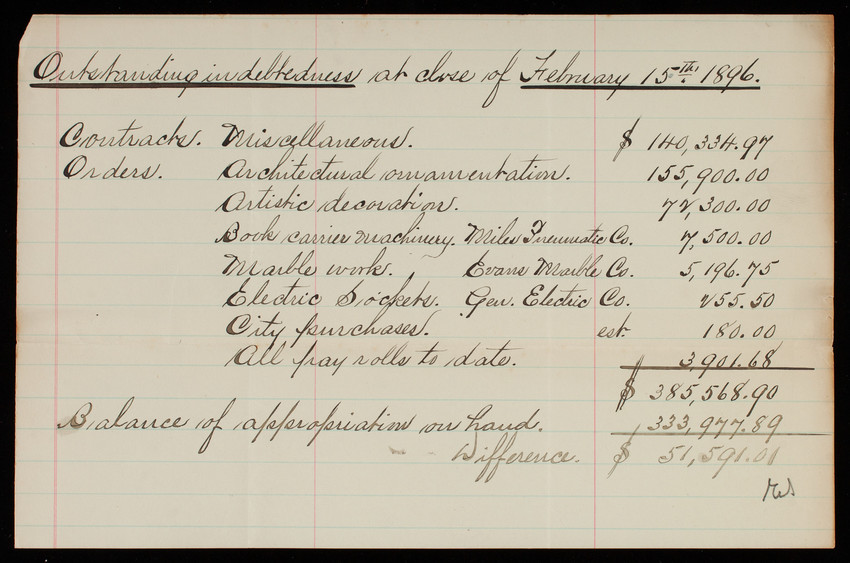 Outstanding indebtedness at close of February 15th. 1896.
Contracts. Miscellaneous. $ 140,334.97
Orders. Architectural ornamentation. 155,900.00
Artistic decoration. 72,300.00
Book carrier machinery. Miles Pneumatic Co. 7,500.00
Marble work. Evans Marble Co. 5,196.75
Electric Sockets. Gen. Electric Co. 255.50
City purchases. est. 180.00
All pay rolls to date. 3,901.68
$ 385,568.90
Balance of appropriation on hand. 333,977.89
Difference. $ 51,591.01